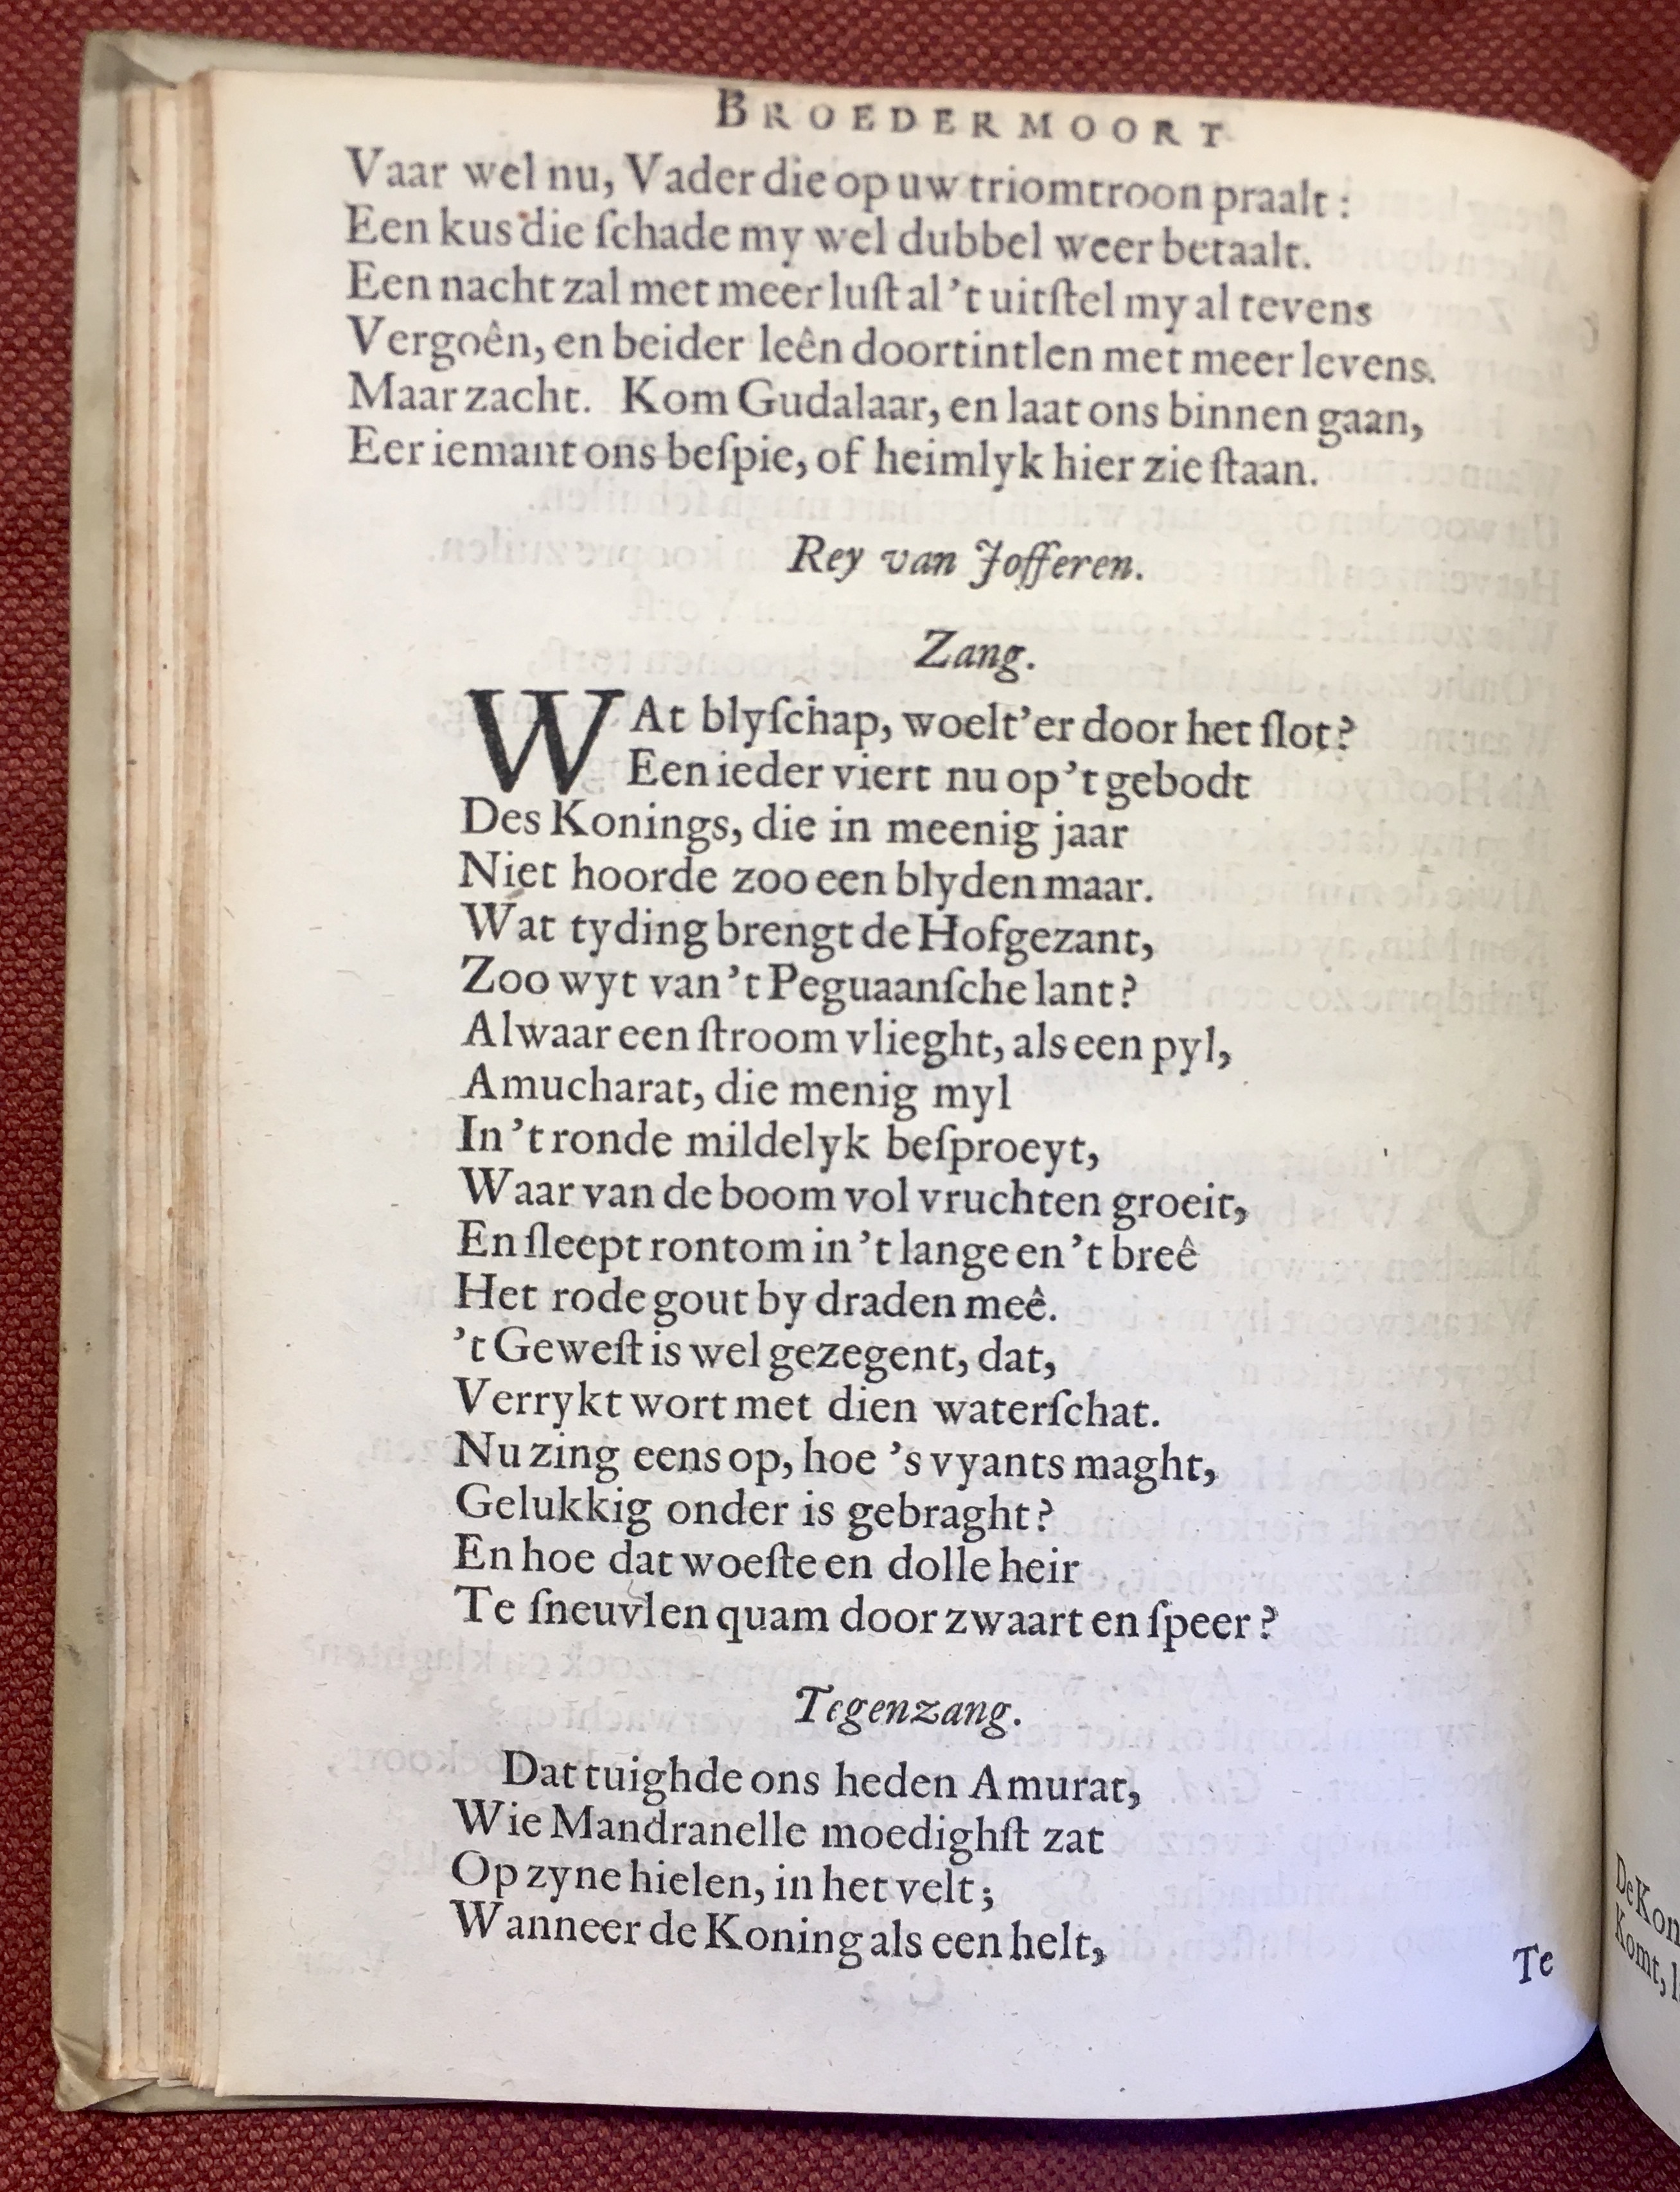 BROEDERMOORT
Vaar wel nu, Vader die op uw triomtroon praalt:
Een kus die ſchade my wel dubbel weer betaalt.
Een nacht zal met meer luſt al 't uitſtel my al tevens
Vergoên, en beider leên doortintlen met meer levens.
Maar zacht. Kom Gudalaar, en laat ons binnen gaan,
Eer iemant ons beſpie, of heimlyk hier zie ſtaan.
Rey van Jofferen.
Zang.
WAt blyſchap, woelt'er door het ſlot?
Een ieder viert nu op 't gebodt
Des Konings, die in meenig jaar
Niet hoorde zoo een blyden maar.
Wat tyding brengt de Hofgezant,
Zoo wyt van 't Peguaanſche lant?
Alwaar een ſtroom vlieght, als een pyl,
Amucharat, die menig myl
In 't ronde mildelyk beſproeyt,
Waar van de boom vol vruchten groeit,
En ſleept rontom in 't lange en 't breê
Het rode gout by draden meê.
't Geweſt is wel gezegent, dat,
Verrykt wort met dien waterſchat.
Nu zing eens op, hoe 's vyants maght,
Gelukkig onder is gebraght?
En hoe dat woeſte en dolle heir
Te ſneuvlen quam door zwaart en ſpeer?
Tegenzang.
Dat tuighde ons heden Amurat,
Wie Mandranelle moedighſt zat
Op zyne hielen, in het velt;
Wanneer de Koning als een helt,
Te
De Kon
Komt, l